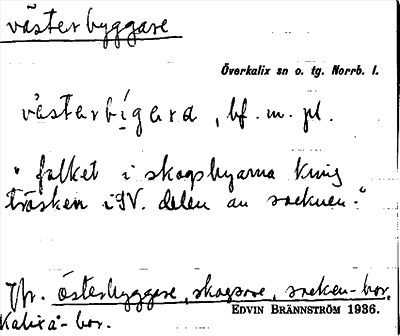 västerbyggare
Överkalix sn o. tg. Norrb. l.
västarbígara, bf. m. pl.
"folket i skogsbyarna kring
träsken i NV. delen av socknen."
Jfr. österbyggare, skogsbor, socken-bor,
Kalixå-bor.
EDVIN BRÄNNSTRÖM 1936.